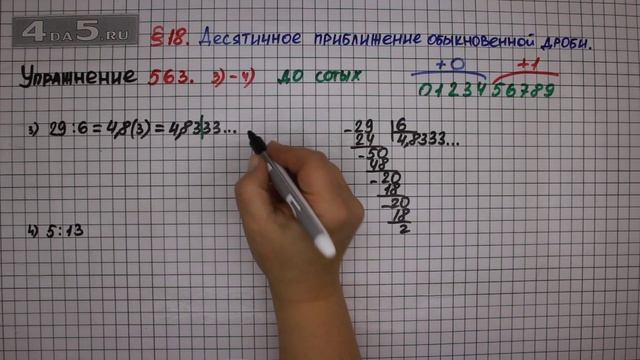 4DA5.RU
§18. Десятичное приближение обыкновенной дроби.
Упражнение 563. 3)-4) до сотых
+0 +1
0123456789
3) 29:6=4,8(3)=4,83|33...
-29 |6
24 4,8333...
-50
48
-20
18
-20
18
2
4) 5:13